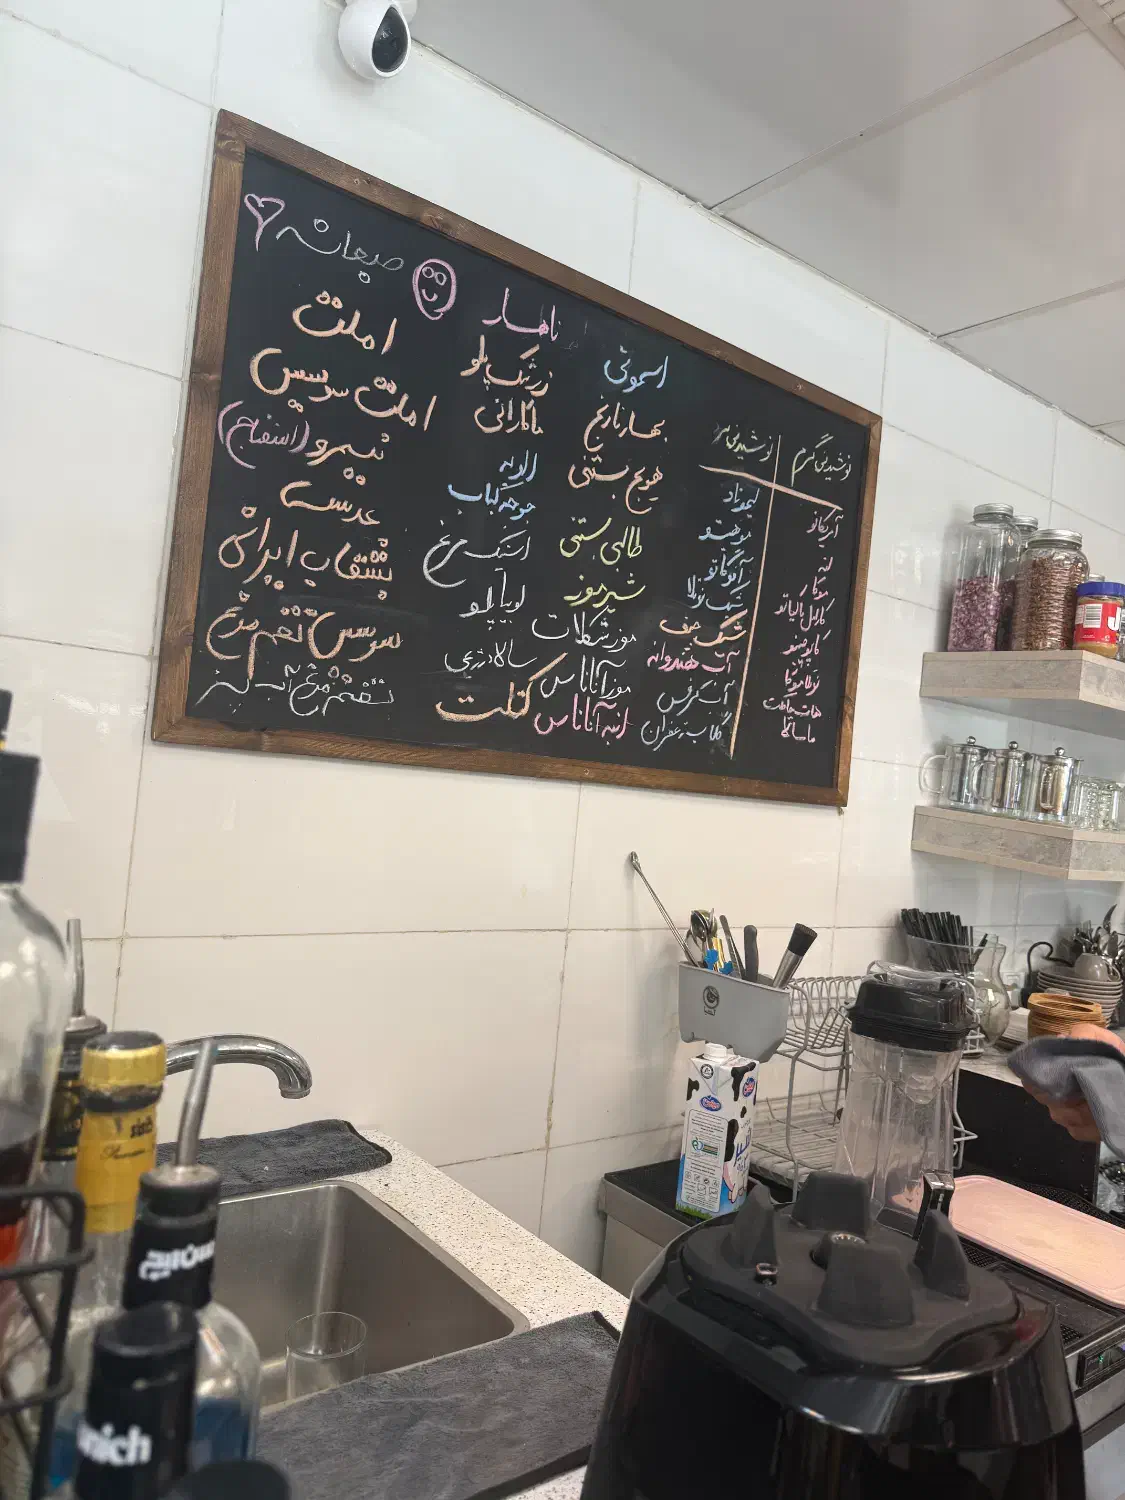 صبحانه
املت
املت سوسیس
نیمرو (اسفناج)
عدسی
بشقاب ایرانی
سوسیس تخم مرغ
تخم مرغ آب پز
ناهار
زرشک پلو
ماکارانی
الویه
جوجه کباب
استیک مرغ
لوبیا پلو
سالاد رژیمی
کتلت
اسموتی
بهار نارنج
هویج بستنی
طالبی بستنی
شیر موز
موز شکلات
موز آناناس
انبه آناناس
نوشیدنی سرد
لیموناد
موهیتو
آفوگاتو
شیک نوتلا
آب هندوانه
آب کرفس
گلاب زعفران
نوشیدنی گرم
آمریکانو
لته
موکا
کاپوچینو
هات چاکلت
ماسالا
nich